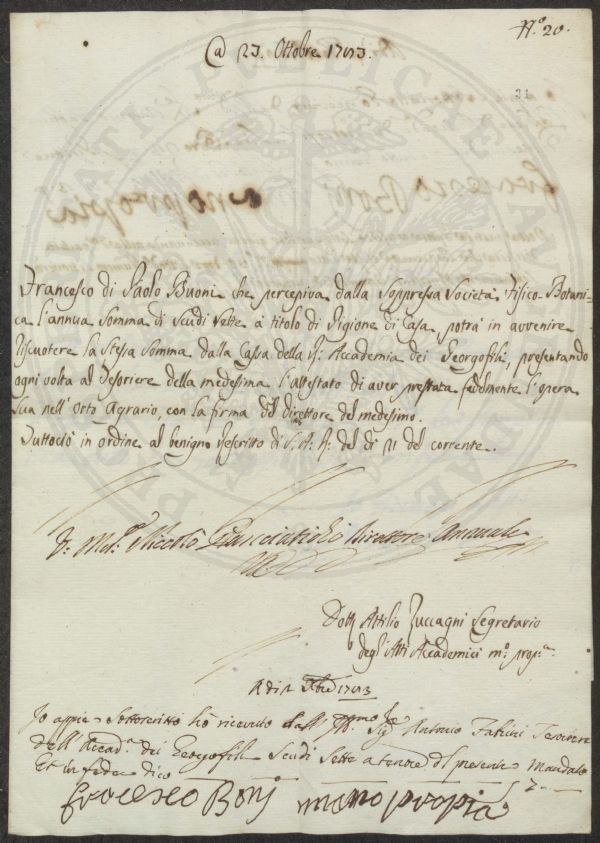 N.º 20.
@ 23. Ottobre 1783.
31
Francesco di Paolo Buoni che percepiva dalla Soppressa Società Fisico-Botani-
ca l'annua Somma di Scudi Sette a titolo di Pigione di Casa, potrà in avvenire
riscuotere la Stessa Somma dalla Cassa della R. Accademia dei Georgofili, presentando
ogni volta al Tesoriere della medesima l'attestato di aver prestata fedelmente l'opera
Sua nell'Orto Agrario, con la firma del Direttore del medesimo.
Tuttociò in ordine al benigno Rescritto di S. A. R. del dì 21 del corrente.
Niccolò Panciatichi Direttore Annuale
Dott. Attilio Zuccagni Segretario
degl'Atti Accademici m.º prop.ª
1783
Io appiè Sottoscritto hò ricevuto dall' Sig. Antonio Fabrini Tesoriere
dell'Accad.ª dei Georgofili Scudi Sette a tenore del presente Mandato
Et in fede dico 7
Francesco Boni mano propia